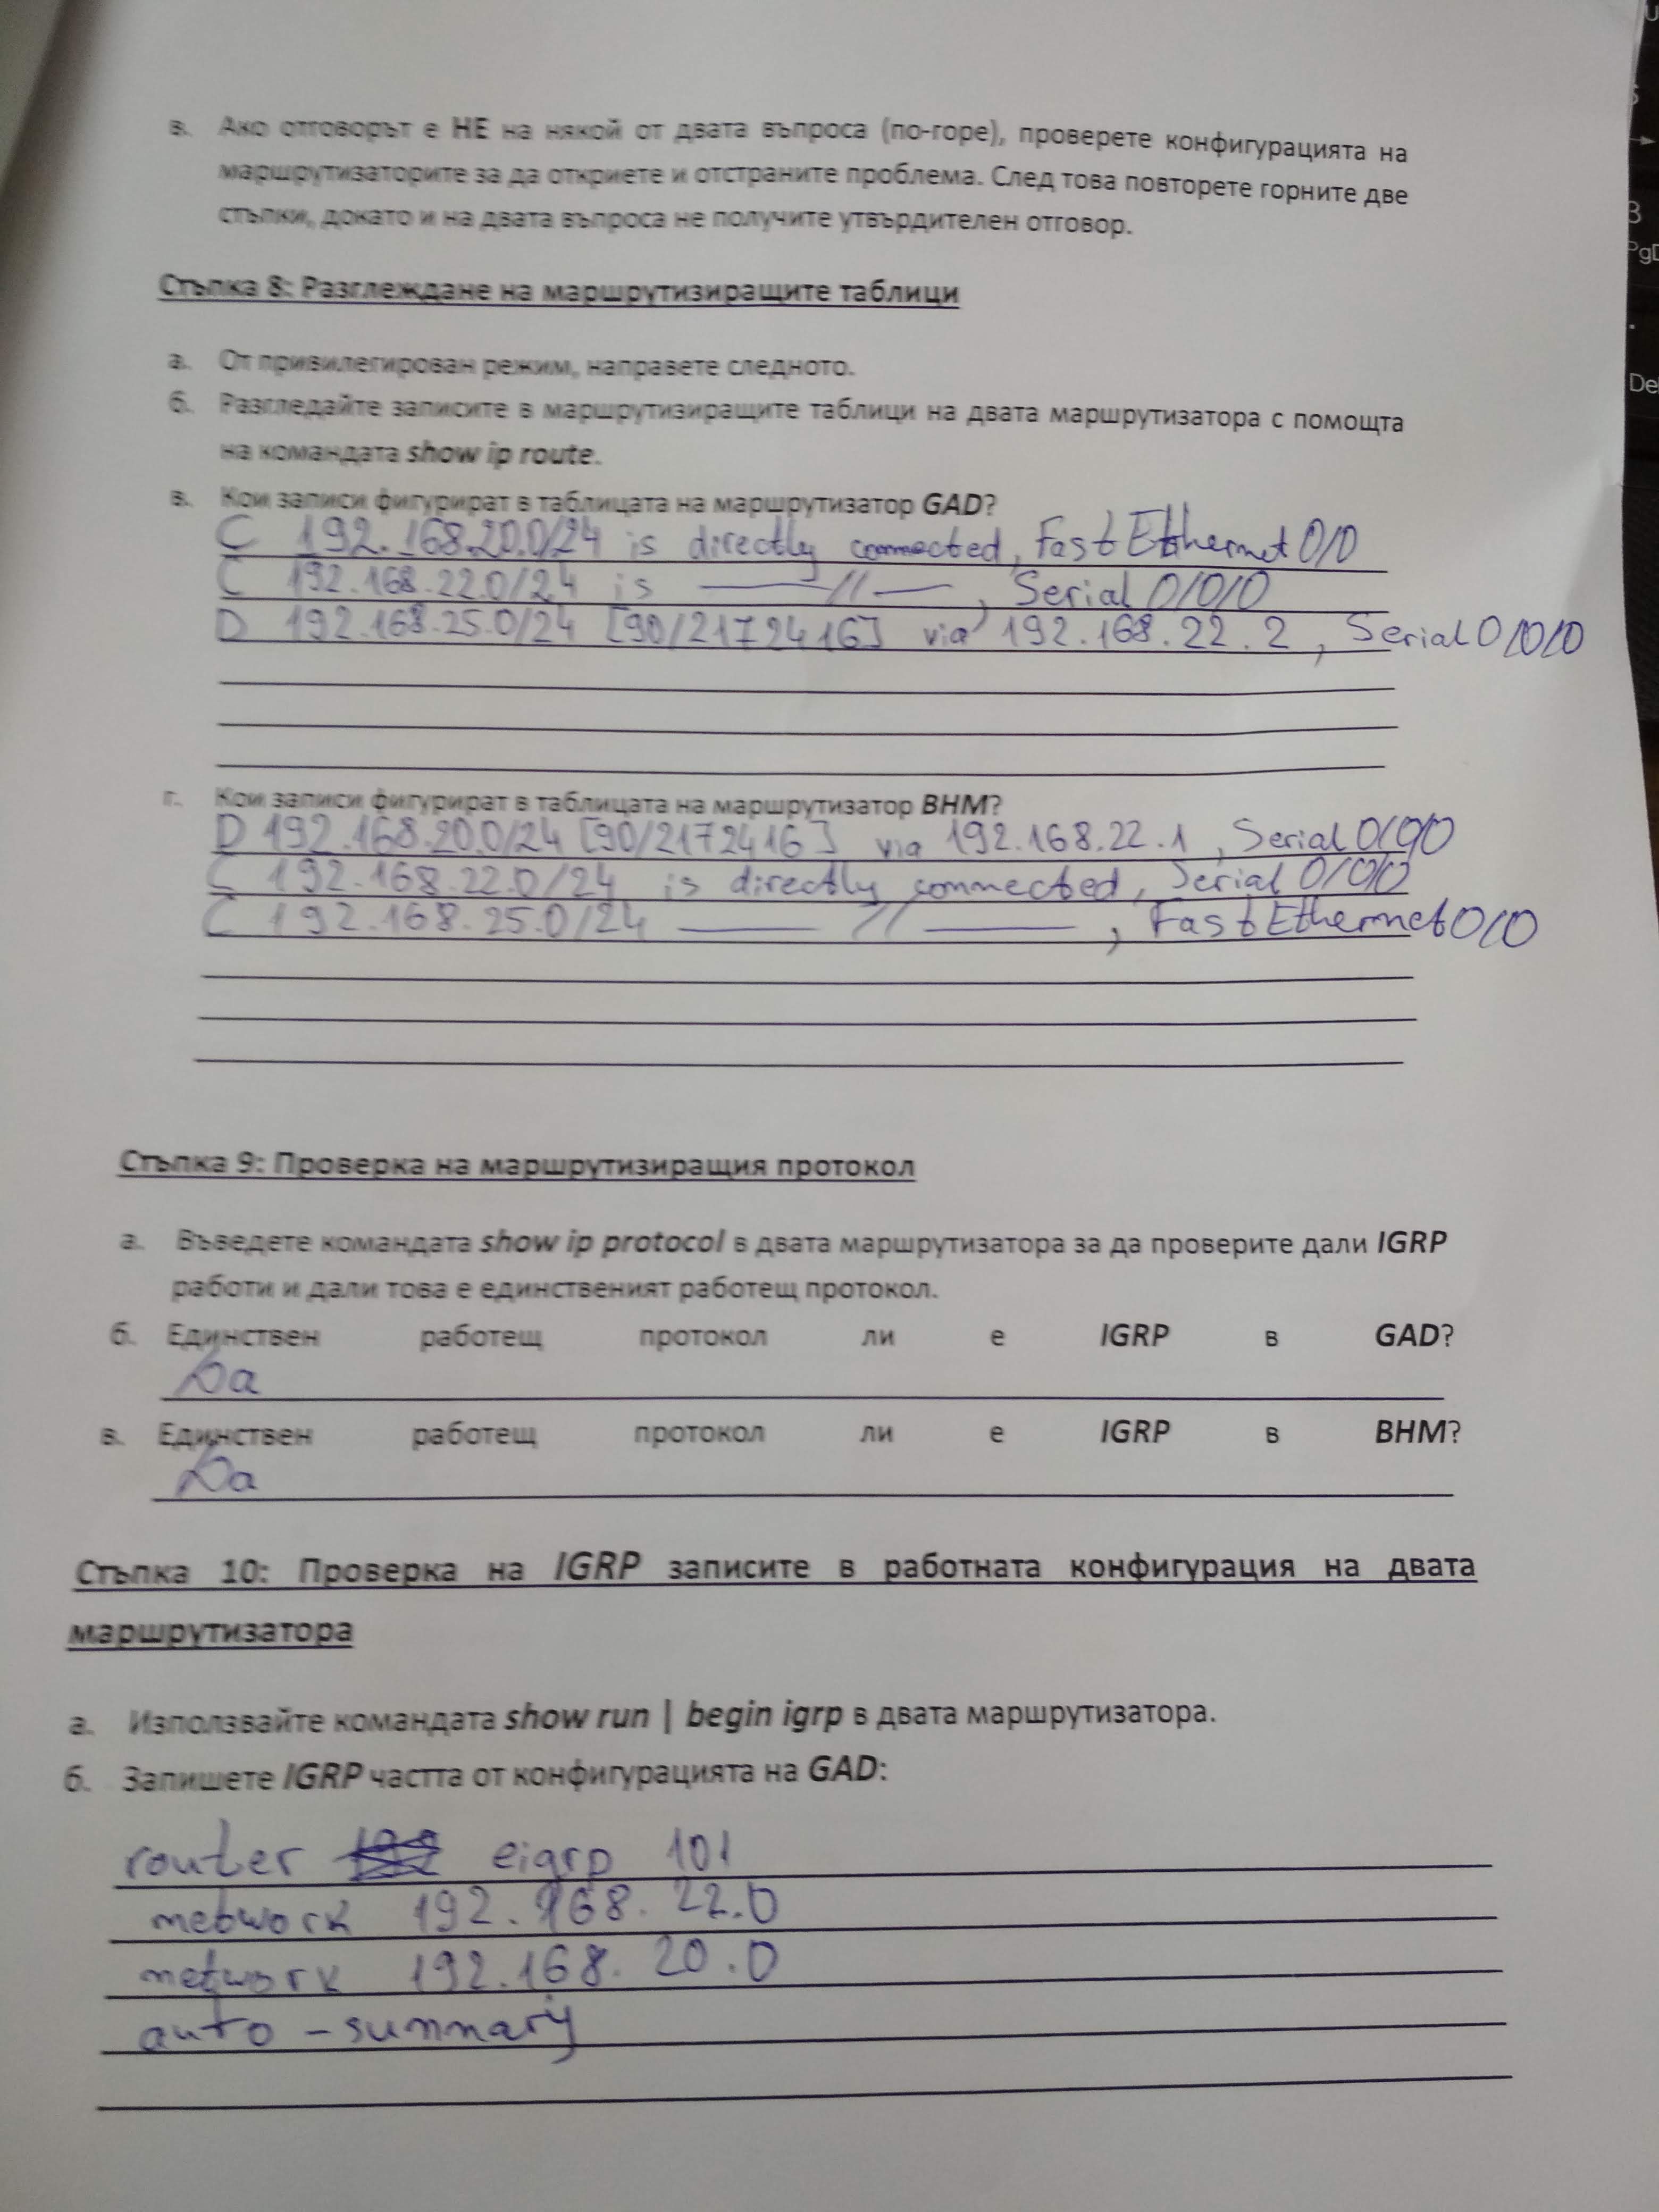 в. Ако отговорът е НЕ на някой от двата въпроса (по-горе), проверете конфигурацията на
маршрутизаторите за да откриете и отстраните проблема. След това повторете горните две
стъпки, докато и на двата въпроса не получите утвърдителен отговор.
Стъпка 8: Разглеждане на маршрутизиращите таблици
а. От привилегирован режим, направете следното.
б. Разгледайте записите в маршрутизиращите таблици на двата маршрутизатора с помощта
на командата show ip route.
в. Кои записи фигурират в таблицата на маршрутизатор GAD?
C 192.168.20.0/24 is directly connected, FastEthernet0/0
C 192.168.22.0/24 is —//—, Serial0/0/0
D 192.168.25.0/24 [90/2172416] via 192.168.22.2, Serial0/0/0
г. Кои записи фигурират в таблицата на маршрутизатор BHM?
D 192.168.20.0/24 [90/2172416] via 192.168.22.1, Serial0/0/0
C 192.168.22.0/24 is directly connected, Serial0/0/0
C 192.168.25.0/24 —//—, FastEthernet0/0
Стъпка 9: Проверка на маршрутизиращия протокол
а. Въведете командата show ip protocol в двата маршрутизатора за да проверите дали IGRP
работи и дали това е единственият работещ протокол.
б. Единствен работещ протокол ли е IGRP в GAD?
Да
в. Единствен работещ протокол ли е IGRP в BHM?
Да
Стъпка 10: Проверка на IGRP записите в работната конфигурация на двата
маршрутизатора
а. Използвайте командата show run | begin igrp в двата маршрутизатора.
б. Запишете IGRP частта от конфигурацията на GAD:
router eigrp 101
network 192.168.22.0
network 192.168.20.0
auto-summary
PgD
De